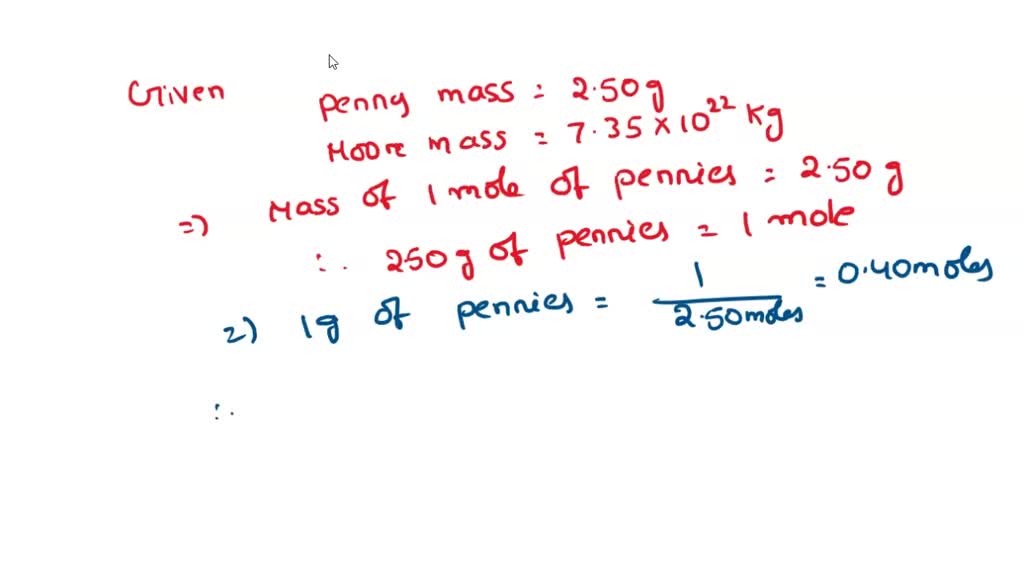 Given Penny mass = 2.50 g
Moon mass = 7.35 × 10²² Kg
=) Mass of 1 mole of pennies = 2.50 g
∴ 250 g of pennies = 1 mole
=) 1g of pennies = 1 / 2.50 moles = 0.40 moles
∴